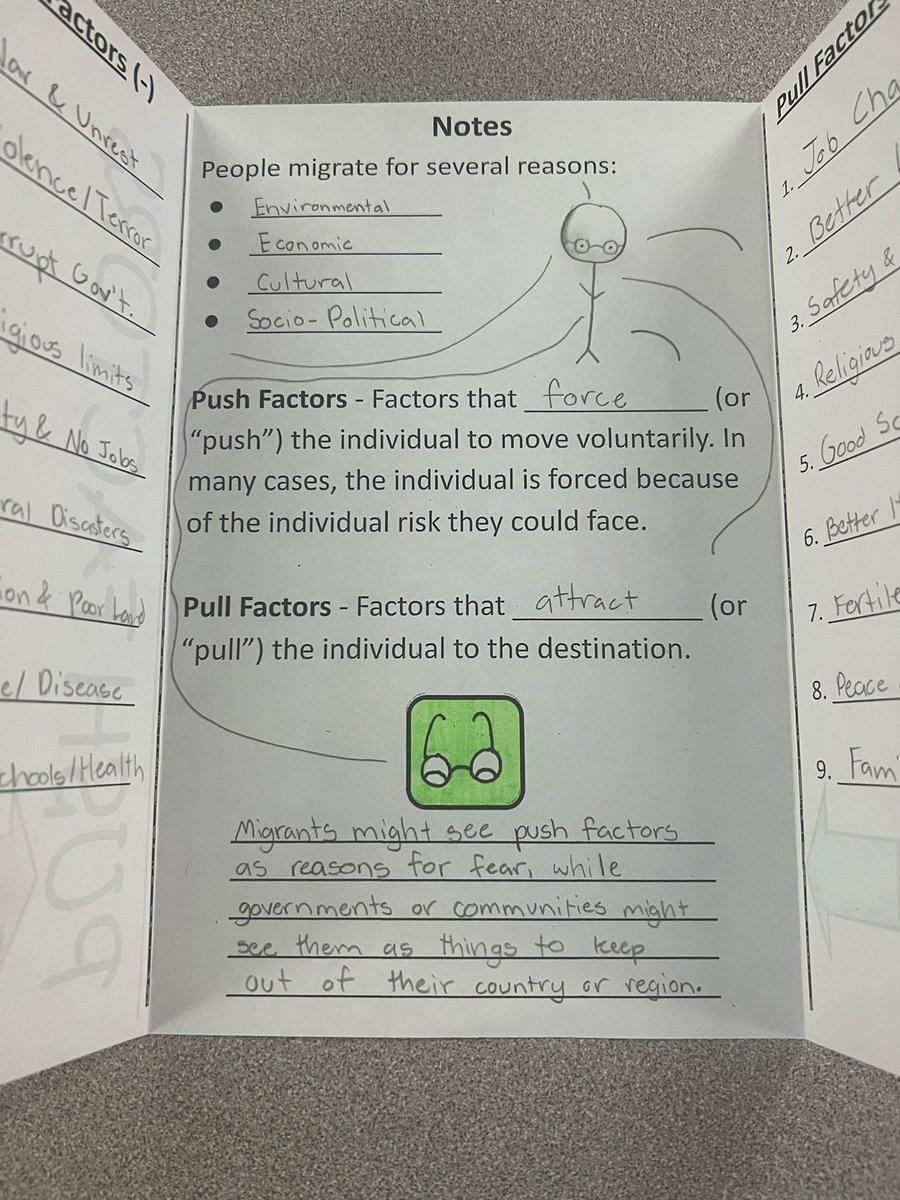 actors (-)
& Unrest
/Terror
Gov't.
limits
& No Jobs
Disasters
& Poor Land
/ Disease
/Health
Notes
People migrate for several reasons:
• Environmental
• Economic
• Cultural
• Socio-Political
Push Factors - Factors that force (or
“push”) the individual to move voluntarily. In
many cases, the individual is forced because
of the individual risk they could face.
Pull Factors - Factors that attract (or
“pull”) the individual to the destination.
Migrants might see push factors
as reasons for fear, while
governments or communities might
see them as things to keep
out of their country or region.
Pull Factors
1. Job Cha
2. Better
3. Safety &
4. Religious
5. Good Sc
6. Better
7. Fertile
8. Peace
9. Fam